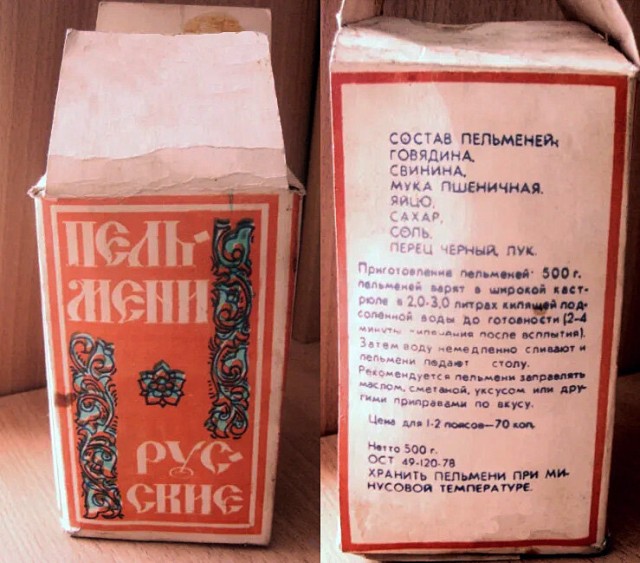 ПЕЛЬ-
МЕНИ
РУС-
СКИЕ
СОСТАВ ПЕЛЬМЕНЕЙ:
ГОВЯДИНА,
СВИНИНА,
МУКА ПШЕНИЧНАЯ,
ЯЙЦО,
САХАР,
СОЛЬ,
ПЕРЕЦ ЧЕРНЫЙ, ЛУК.
Приготовление пельменей: 500 г.
пельменей варят в широкой каст-
рюле в 2,0-3,0 литрах кипящей под-
соленной воды до готовности (2-4
минуты кипячения после всплытия).
Затем воду немедленно сливают и
пельмени подают столу.
Рекомендуется пельмени заправлять
маслом, сметаной, уксусом или дру-
гими приправами по вкусу.
Цена для 1-2 поясов—70 коп.
Нетто 500 г.
ОСТ 49-120-78
ХРАНИТЬ ПЕЛЬМЕНИ ПРИ МИ-
НУСОВОЙ ТЕМПЕРАТУРЕ.